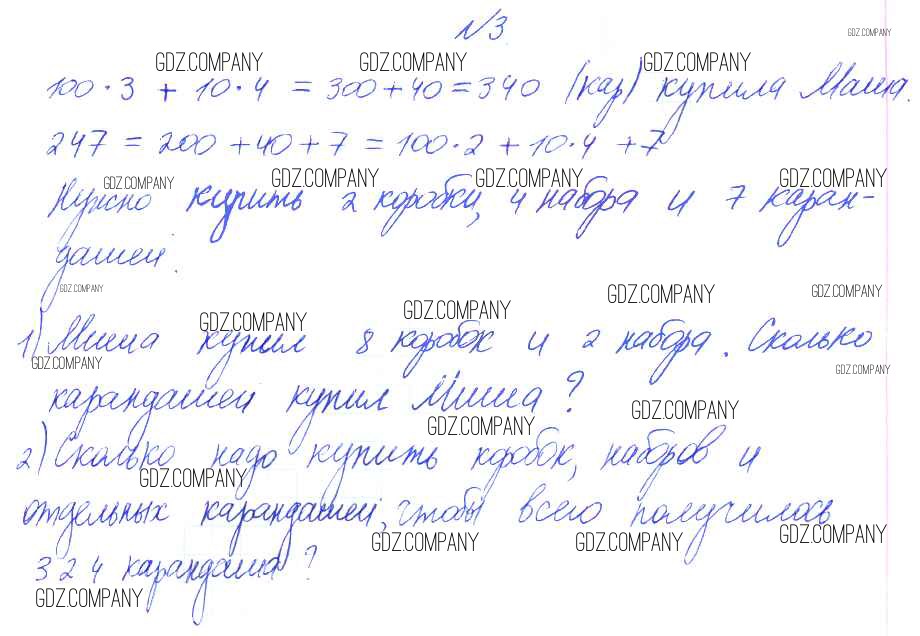 №3
GDZ.COMPANY
GDZ.COMPANY GDZ.COMPANY GDZ.COMPANY
100·3 + 10·4 = 300+40=340 (кар) купила Маша.
247 = 200 +40+7 = 100·2 + 10·4 +7
GDZ.COMPANY GDZ.COMPANY GDZ.COMPANY GDZ.COMPANY
Нужно купить 2 коробки, 4 набора и 7 каран-
дашей.
GDZ.COMPANY GDZ.COMPANY GDZ.COMPANY
GDZ.COMPANY GDZ.COMPANY
1) Миша купил 8 коробок и 2 набора. Сколько
GDZ.COMPANY GDZ.COMPANY
карандашей купил Миша?
GDZ.COMPANY GDZ.COMPANY
2) Сколько надо купить коробок, наборов и
GDZ.COMPANY
отдельных карандашей, чтобы всего получилось
GDZ.COMPANY GDZ.COMPANY GDZ.COMPANY
324 карандаша?
GDZ.COMPANY